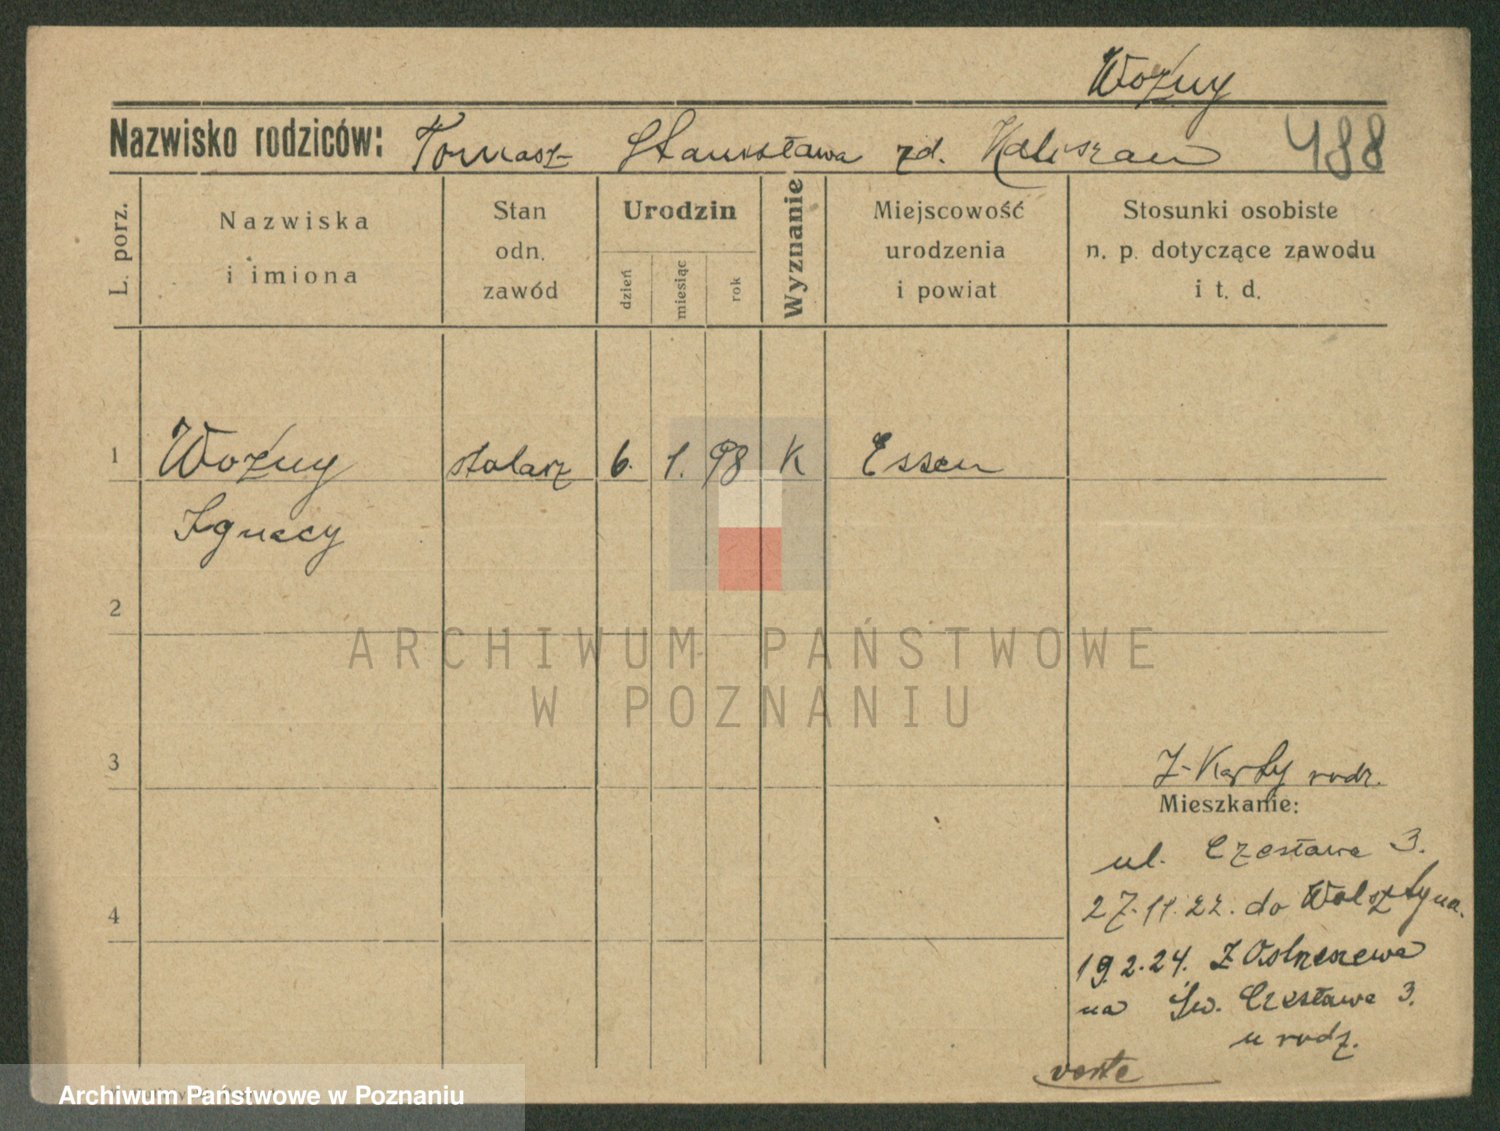 Woźny
Nazwisko rodziców: Tomasz Stanisława zd. Kaliszan 488
L. porz.
Nazwiska
i imiona
Stan
odn.
zawód
Urodzin
dzień
miesiąc
rok
Wyznanie
Miejscowość
urodzenia
i powiat
Stosunki osobiste
n. p. dotyczące zawodu
i t. d.
1 Woźny stolarz 6. 1. 98 K Essen
Ignacy
2
ARCHIWUM PAŃSTWOWE
W POZNANIU
3
Z Karty rodz.
Mieszkanie:
ul. Czesława 3.
27.11.22. do Wolsztyna.
4
19.2.24. Z
na Św. Czesława 3.
u rodz.
verte
Archiwum Państwowe w Poznaniu